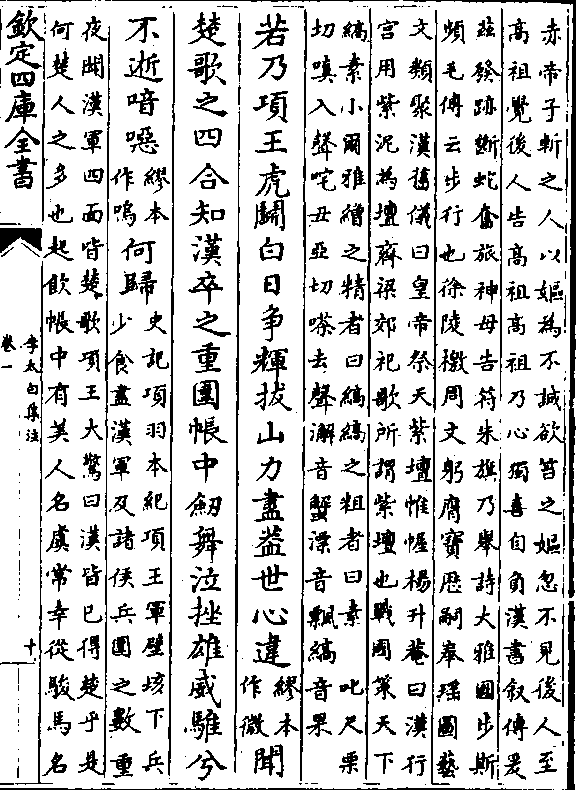 赤帝子斬之人以嫗為不誠欲笞之嫗忽不見後人至
高祖覺後人告高祖高祖乃心獨喜自負漢書叙傳爰
茲發跡斷蛇奮旅神母告符朱旗乃舉詩大雅國步斯
頻毛傳云步行也徐陵檄周文躬膺寶歴嗣奉瑶圖藝
文類聚漢舊儀曰皇帝祭天紫壇帷幄楊升菴曰漢行
宫用紫泥為壇齋梁郊祀歌所謂紫壇也戰國策天下
縞素小爾雅繒之精者曰縞縞之粗者曰素 叱尺栗
切嗔入聲咤丑亞切嗏去聲澥音蟹漂音飄縞音杲
若乃項王虎鬭白日争輝拔山力盡葢世心違
繆本
作微
聞
楚歌之四合知漢卒之重圍帳中劒舞泣挫雄威騅兮
不逝喑噁
繆本
作嗚
何歸
史記項羽本紀項王軍壁垓下兵
少食盡漢軍及諸侯兵圍之數重
夜聞漢軍四面皆楚歌項王大驚曰漢皆已得楚乎是
何楚人之多也起飲帳中有美人名虞常幸從駿馬名
欽定四庫全書
李太白集注
卷一
十